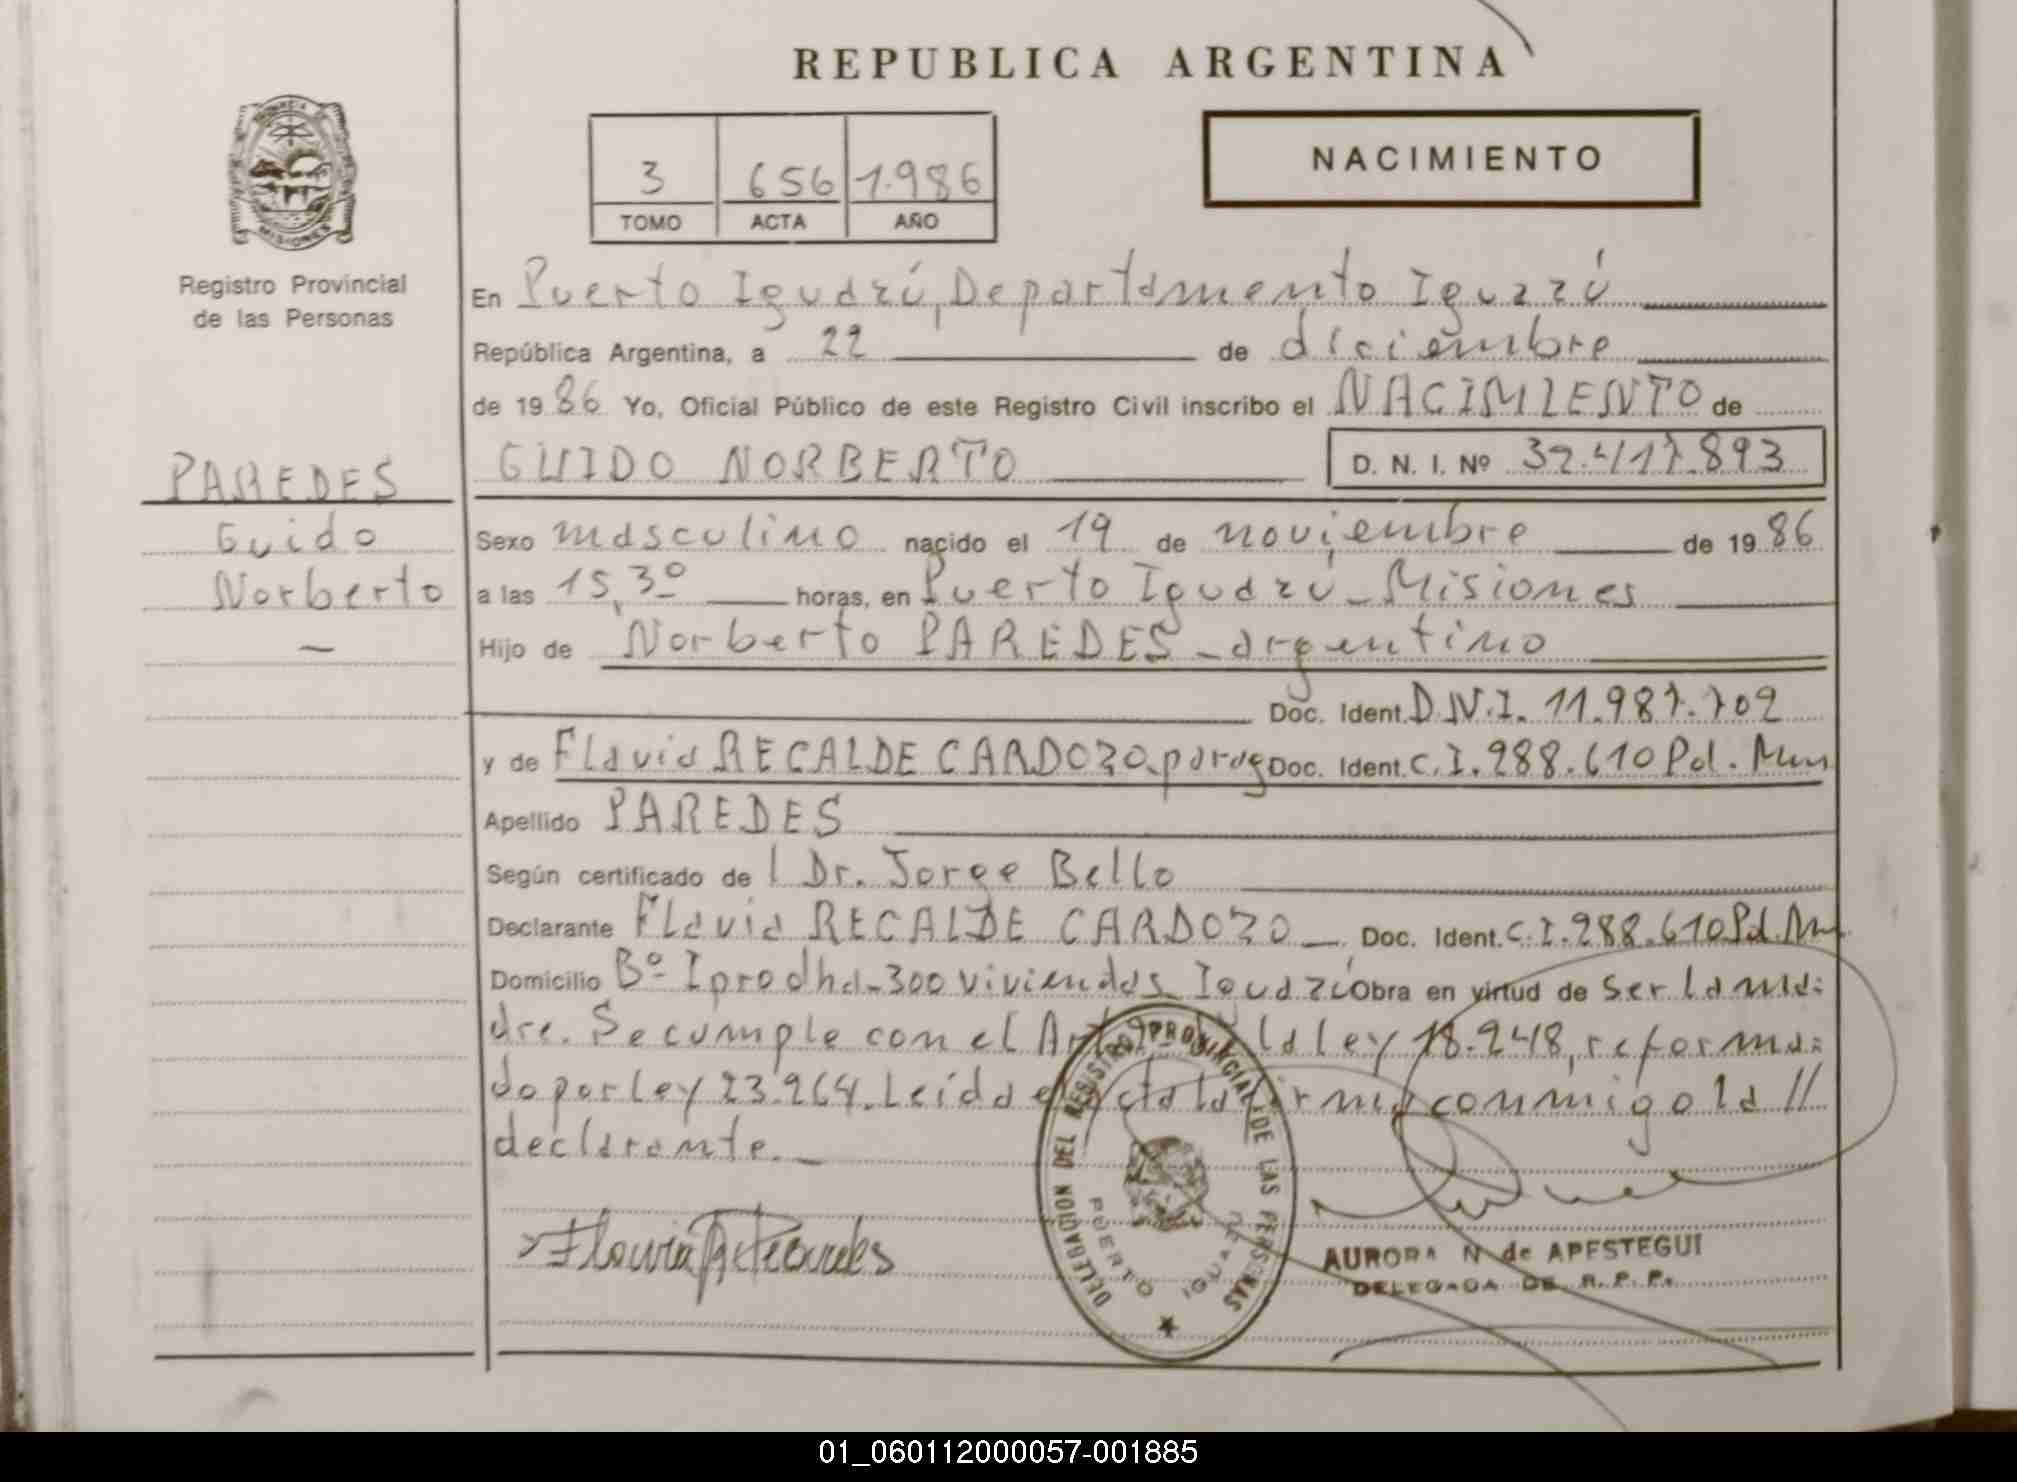 REPUBLICA ARGENTINA
PROVINCIA DE
MISIONES
Registro Provincial
de las Personas
3 656 1.986
TOMO ACTA AÑO
NACIMIENTO
En Puerto Iguazú, Departamento Iguazú
República Argentina, a 22 de diciembre
de 1986 Yo, Oficial Público de este Registro Civil inscribo el NACIMIENTO de
PAREDES
Guido
Norberto
GUIDO NORBERTO D. N. I. Nº 32.417.893
Sexo masculino nacido el 19 de noviembre de 1986
a las 15,30 horas, en Puerto Iguazú - Misiones
Hijo de Norberto PAREDES - argentino
Doc. Ident. D.N.I. 11.987.702
y de Flavia RECALDE CARDOZO, parag Doc. Ident. C.I. 988.610 Pol. Mnes
Apellido PAREDES
Según certificado del Dr. Jorge Bello
Declarante Flavia RECALDE CARDOZO - Doc. Ident. C.I. 988.610 Pol. Mn
Domicilio Bº Iprodha - 300 viviendas Iguazú Obra en virtud de ser la ma:
dre. Se cumple con el la ley 18.248, reforma:
do por ley 23.264. Leída el acta la firma conmigo la //
declarante. -
DELEGACION DEL REGISTRO PROVINCIAL DE LAS PERSONAS
PUERTO IGUAZU
AURORA N de APESTEGUI
DELEGADA DE R. P. P.
01_060112000057-001885